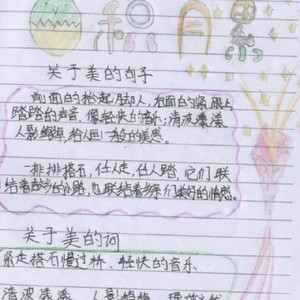 关于美的句子
前面的抬起脚人，后面的紧跟上
踏踏的声音，像轻快的音乐；清波漾漾
人影绰绰，给人画一般的美感。
一排排搭石，任人走，任人踏，它们联
结着故乡的小路，也联结着乡亲们美好的情感。
关于美的词
紧走搭石慢过桥、轻快的音乐
清波漾漾 人影绰绰 理所当然